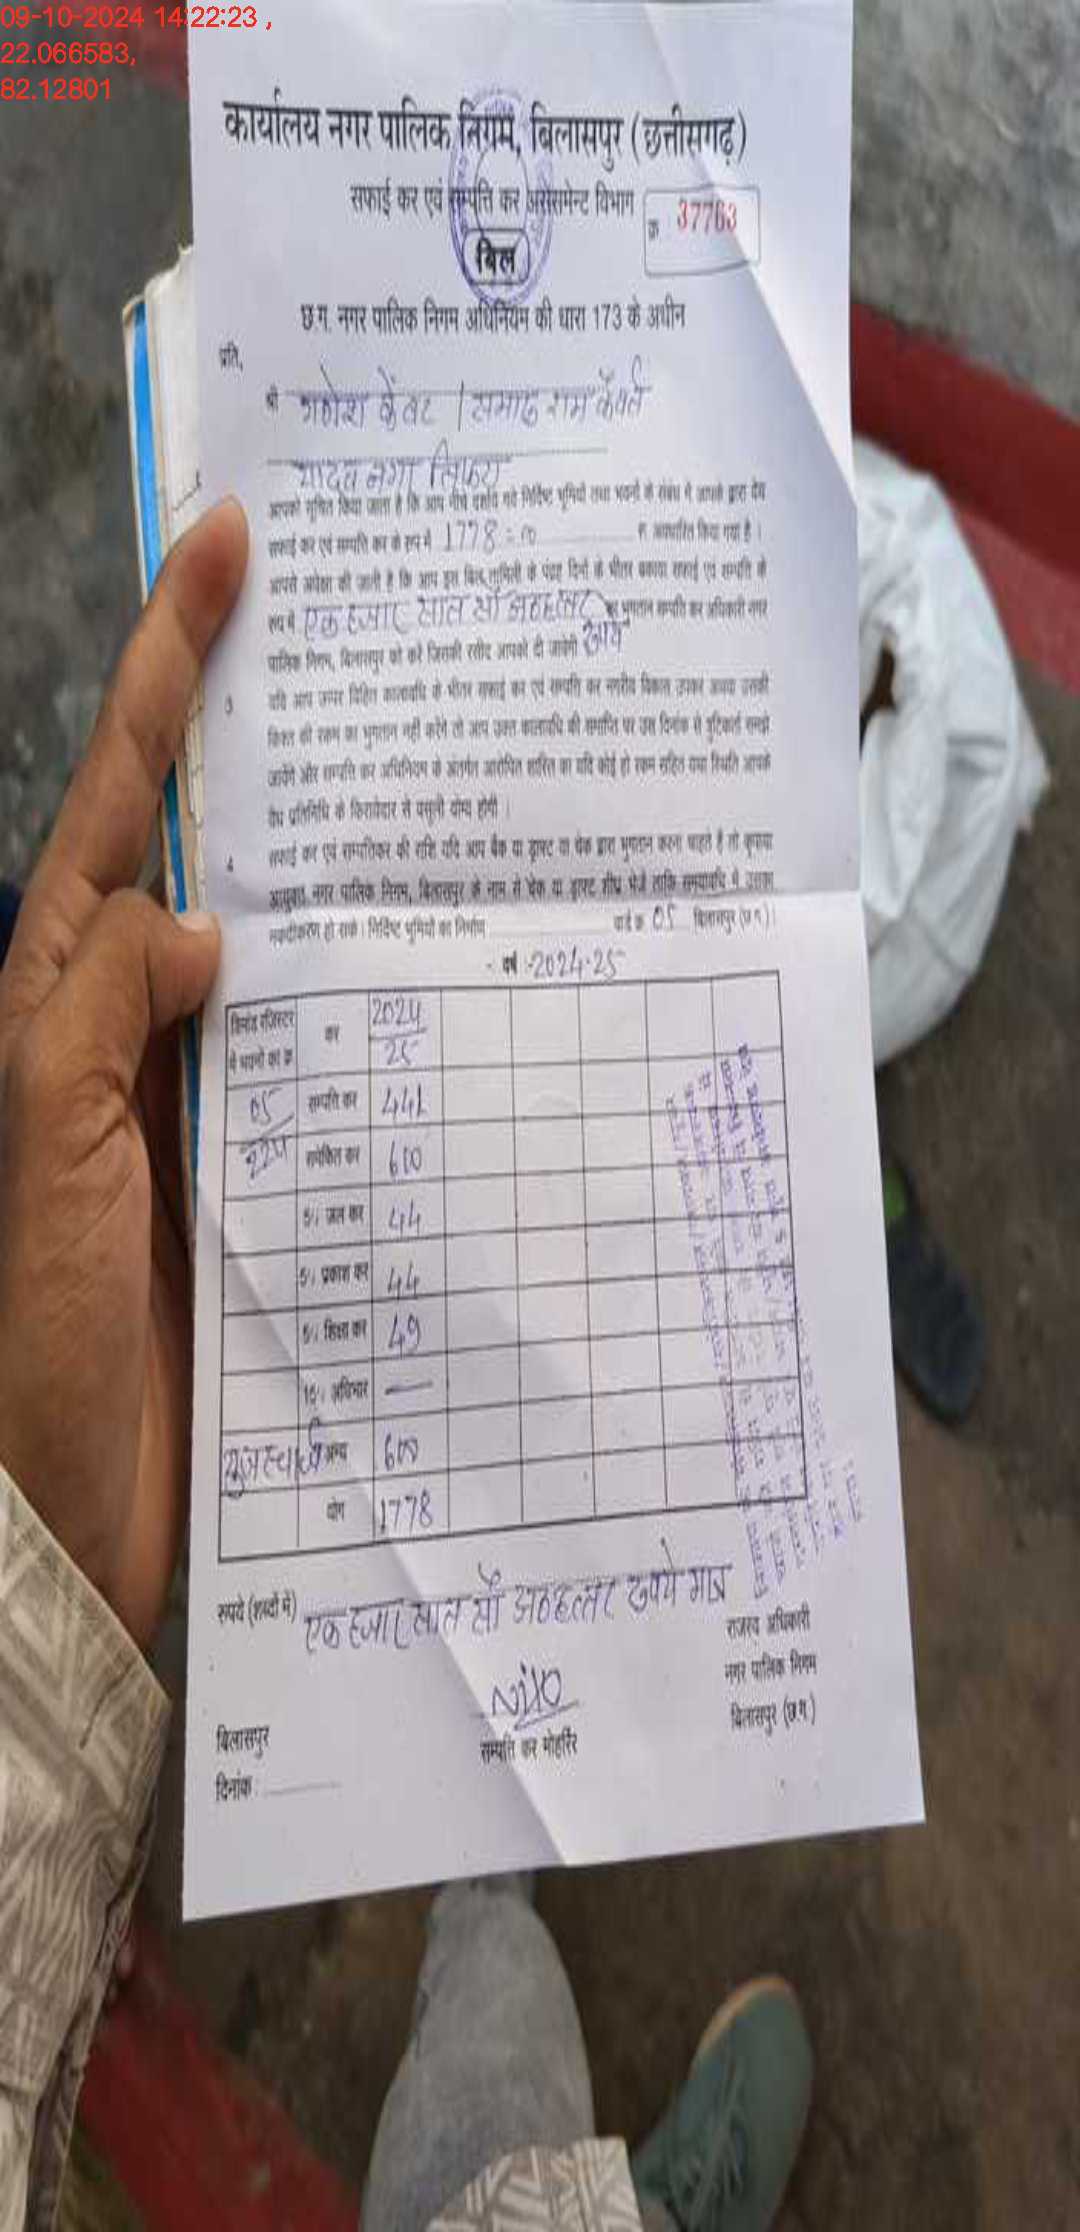 09-10-2024 14:22:23 ,
22.066583,
82.12801
कार्यालय नगर पालिक निगम, बिलासपुर (छत्तीसगढ़)
सफाई कर एवं सम्पत्ति कर असेसमेन्ट विभाग
क्र 37763
बिल
छ.ग. नगर पालिक निगम अधिनियम की धारा 173 के अधीन
प्रति,
श्री गणेश केंवट / समारू राम कैवर्त
यादव नगर तिफरा
आपको सूचित किया जाता है कि आप नीचे दर्शाये गये निर्दिष्ट भूमियों तथा भवनों के संबंध में आपके द्वारा देय
सफाई कर एवं सम्पत्ति कर के रूप में 1778=00 रु. अवधारित किया गया है ।
आपसे अपेक्षा की जाती है कि आप इस बिल तामिली के पंद्रह दिनों के भीतर बकाया सफाई एवं सम्पत्ति के
रूप में एक हजार सात सौ अठहत्तर का भुगतान सम्पत्ति कर अधिकारी नगर
पालिक निगम, बिलासपुर को करें जिसकी रसीद आपको दी जावेगी
3 यदि आप ऊपर विहित कालावधि के भीतर सफाई कर एवं सम्पत्ति कर नगरीय विकास उपकर अथवा उसकी
किस्त की रकम का भुगतान नहीं करेंगे तो आप उक्त कालावधि की समाप्ति पर उस दिनांक से त्रुटिकर्ता समझे
जायेंगे और सम्पत्ति कर अधिनियम के अंतर्गत आरोपित शास्ति का यदि कोई हो रकम सहित यथा स्थिति आपके
वैध प्रतिनिधि के किरायेदार से वसूली योग्य होगी ।
4 सफाई कर एवं सम्पत्तिकर की राशि यदि आप बैंक या ड्राफ्ट या चेक द्वारा भुगतान करना चाहते हैं तो कृपया
आयुक्त नगर पालिक निगम, बिलासपुर के नाम से चेक या ड्राफ्ट शीघ्र भेजें ताकि समयावधि में उसका
नकदीकरण हो सके । निर्दिष्ट भूमियों का निर्माण वार्ड क्र 05 बिलासपुर (छ.ग.)।
- वर्ष -2024-25
डिमांड रजिस्टर में भवनों का क्र कर 2024/25
05/224 सम्पत्ति कर 441
समेकित कर 600
5% जल कर 44
5% प्रकाश कर 44
5% शिक्षा कर 49
10% अधिभार —
यूजरचार्ज अन्य 600
योग 1778
रुपये (शब्दों में) एक हजार सात सौ अठहत्तर रुपये मात्र
राजस्व अधिकारी
नगर पालिक निगम
बिलासपुर (छ.ग.)
सम्पत्ति कर मोहर्रिर
बिलासपुर
दिनांक :